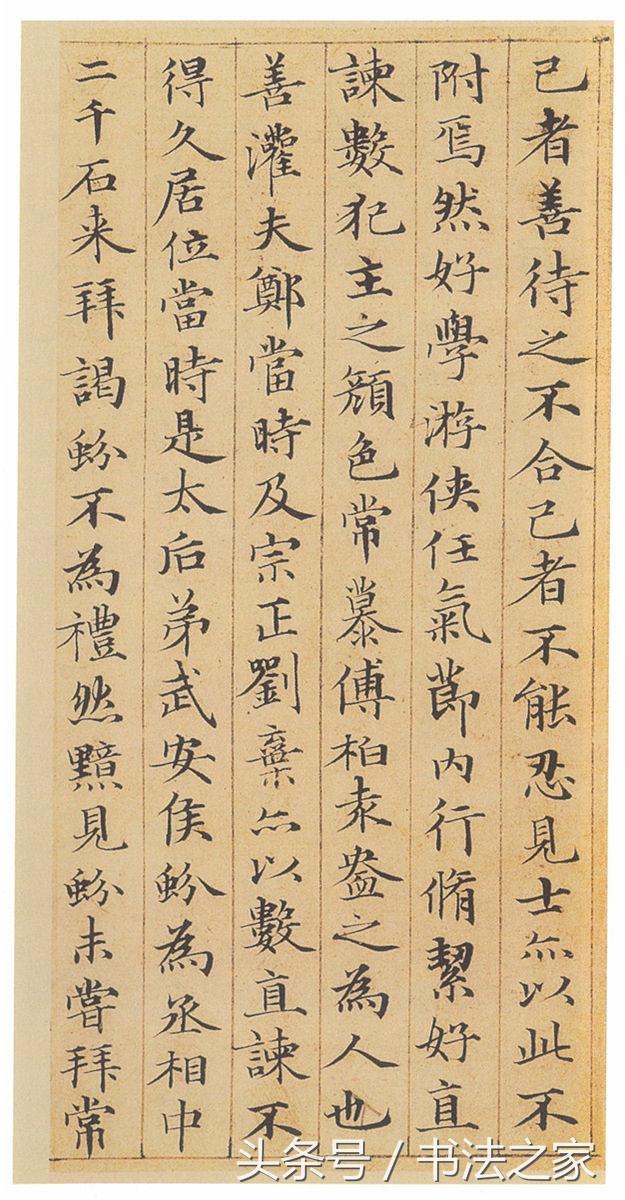 己者善待之不合己者不能忍見士亦以此不
附焉然好學游俠任氣節内行脩絜好直
諫數犯主之顔色常慕傅柏袁盎之為人也
善灌夫鄭當時及宗正劉棄亦以數直諫不
得久居位當時是太后弟武安侯蚡為丞相中
二千石来拜謁蚡不為禮然黯見蚡未嘗拜常
头条号/书法之家